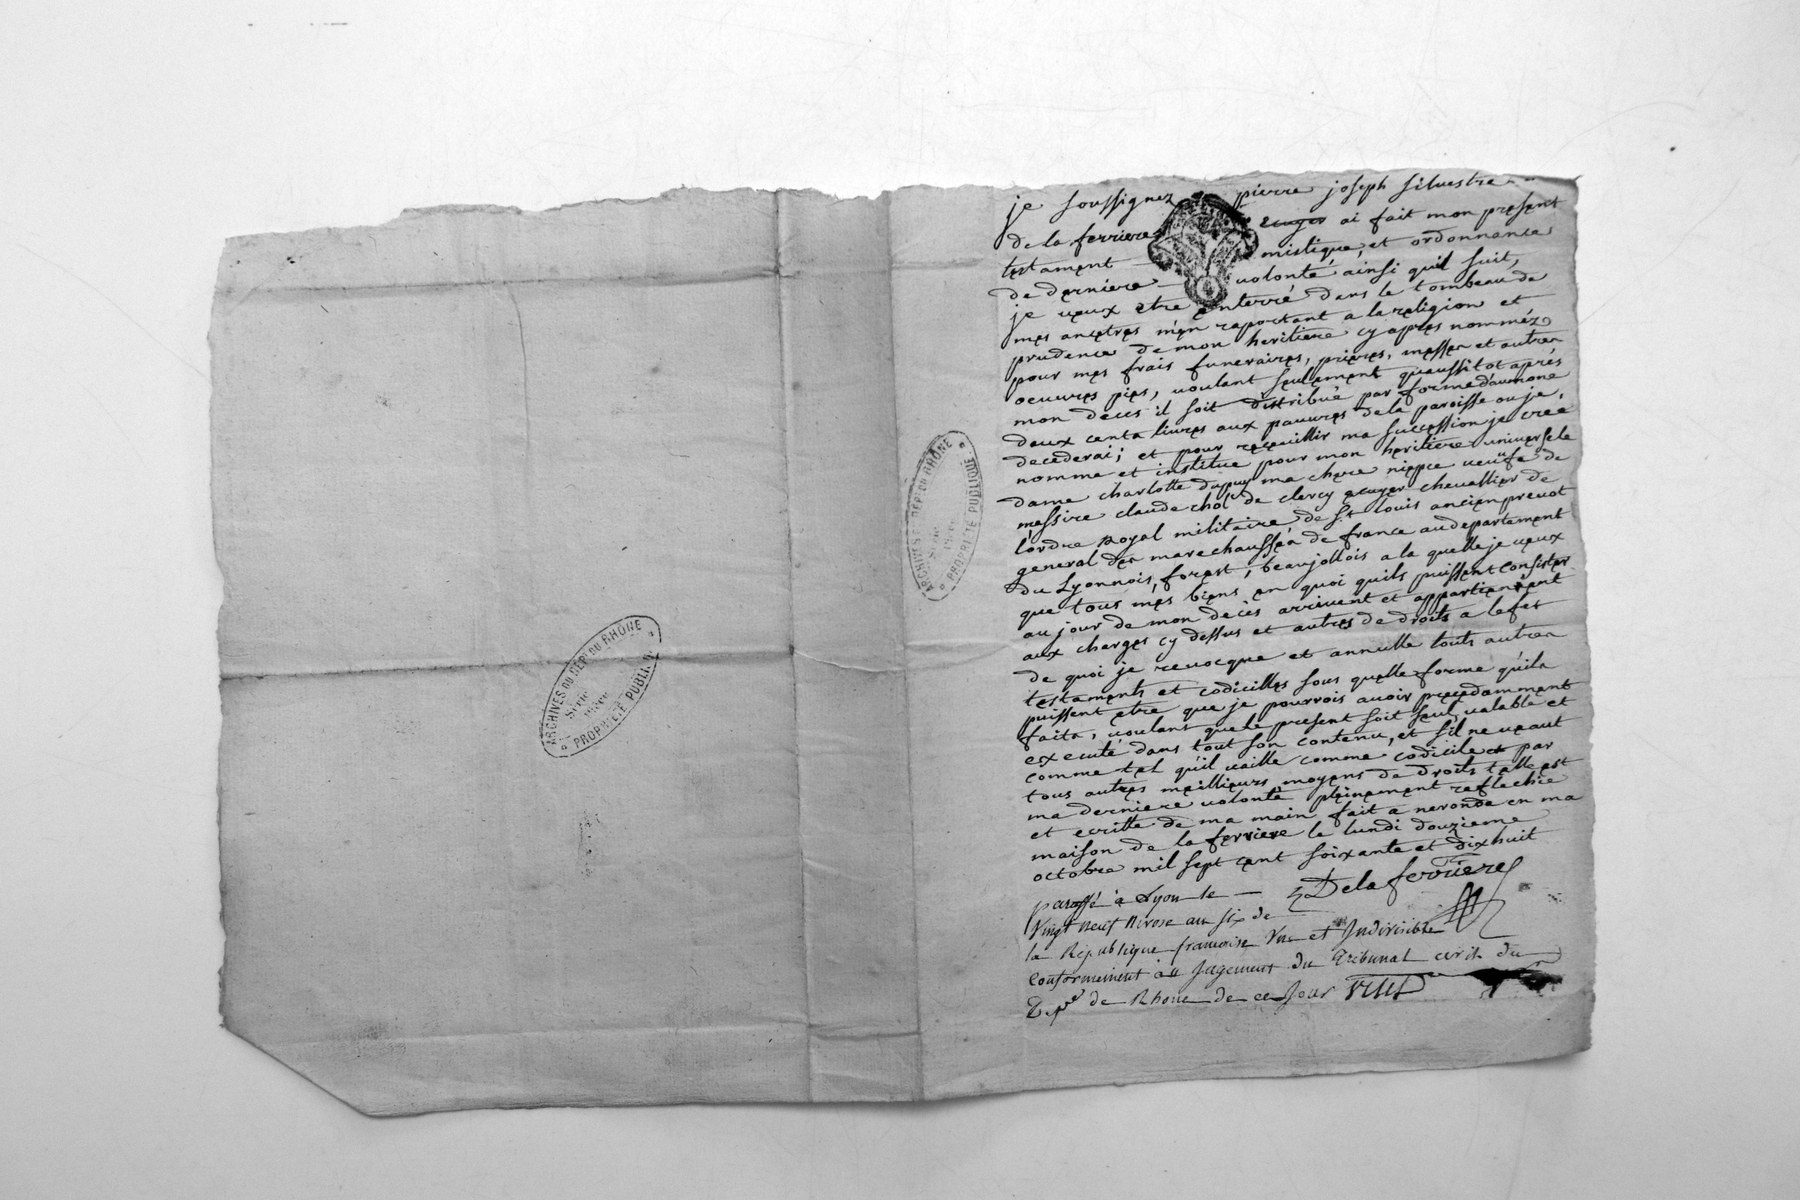 je soussignez pierre joseph silvestre
de la ferriere Ecuyer ai fait mon present
testament mistique, et ordonnance
de derniere volonté ainsi quil suit,
je veux etre enterré dans le tombeau de
mes ancetres m'en raportant a la religion et
prudence de mon heritiere cy apres nommée
pour mes frais funeraires, prieres, messes et autres
oeuvres pies, voulant seulement quaussitot aprés
mon deces il soit distribué par forme d'aumone
deux cents livres aux pauvres de la paroisse ou je
decederai; et pour recueillir ma succession je crée,
nomme et institue pour mon heritiere universele
dame charlotte dupuy ma chere niepce veufe de
messire claude chol de clercy ecuyer chevallier de
l'ordre Royal militaire de St. louis ancien prevot
general des marechaussén de france au departement
du Lyonnois, forest, beaujollois a la quelle je veux
que tous mes biens en quoi quils puissent consister
au jour de mon deces arrivent et appartiennent
aux charges cy dessus et autres de droits a leffet
de quoi je revocque et annulle touts autres
testaments et codicilles sous quelle forme quils
puissent etre que je pourrois avoir precedamment
faits, voulant que le present soit seul valable et
executé dans tout son contenu, et s'il ne vaut
comme tel qu'il vaille comme codicile et par
tous autres meilleurs moyens de droits telle est
ma derniere volonté pleinement reflechie
et ecritte de ma main fait a neronde en ma
maison de la ferriere le lundi douzieme
octobre mil sept cent soixante et dixhuit
Delaferriere
paraffé à Lyon le
Vingt neuf Nivose an six de
la République francoise Une et Indivisible
Conformément au Jugement du Tribunal civil du
Depte de Rhone de ce Jour
ARCHIVES DU DÉPt DU RHÔNE
Série
PROPRIÉTÉ PUBLIQUE
ARCHIVES DU DÉPt DU RHÔNE
Série
PROPRIÉTÉ PUBLIQUE